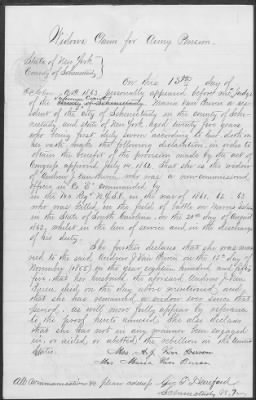 Widows Claim for Army Pension.
State of New York
County of Schenectady
On this 13th day of
October 1863 personally appeared before the Judge
of the County of Schenectady Maria Van Buren a re-
sident of the city of Schenectady in the County of Sche-
nectady and State of New York aged twenty five years
who being first duly sworn according to law doth on
her oath, make the following declaration, in order to
obtain the benefit of the provision made by the act of
Congress approved July 14, 1862. That she is the widow
of Van Buren, who was a non-commissioned
officer in Co. "E" commanded by
in the N.Y.S.V. in the war of 1861, 62 & 63
who was killed in the field of battle on Morris Island
in the State of South Carolina, on the 20th day of August
1863, whilst in the line of service and in the discharge
of his duty.
She further declares that she was mar-
ried to the said Van Buren on the 12th day of
November (1855) in the year eighteen hundred and fifty
five, that her husband, the aforesaid Andrew J. Van
Buren died on the day above mentioned, and
that she has remained a widow ever since that
period, as will more fully appear by reference
to the proof hereto annexed. She also declares
that she has not in any manner been engaged
in, or aided, or abetted, the rebellion in the United
States.
Mrs. A.J. Van Buren
Mrs. Maria Van Buren
All communications please address
Schenectady N.Y.